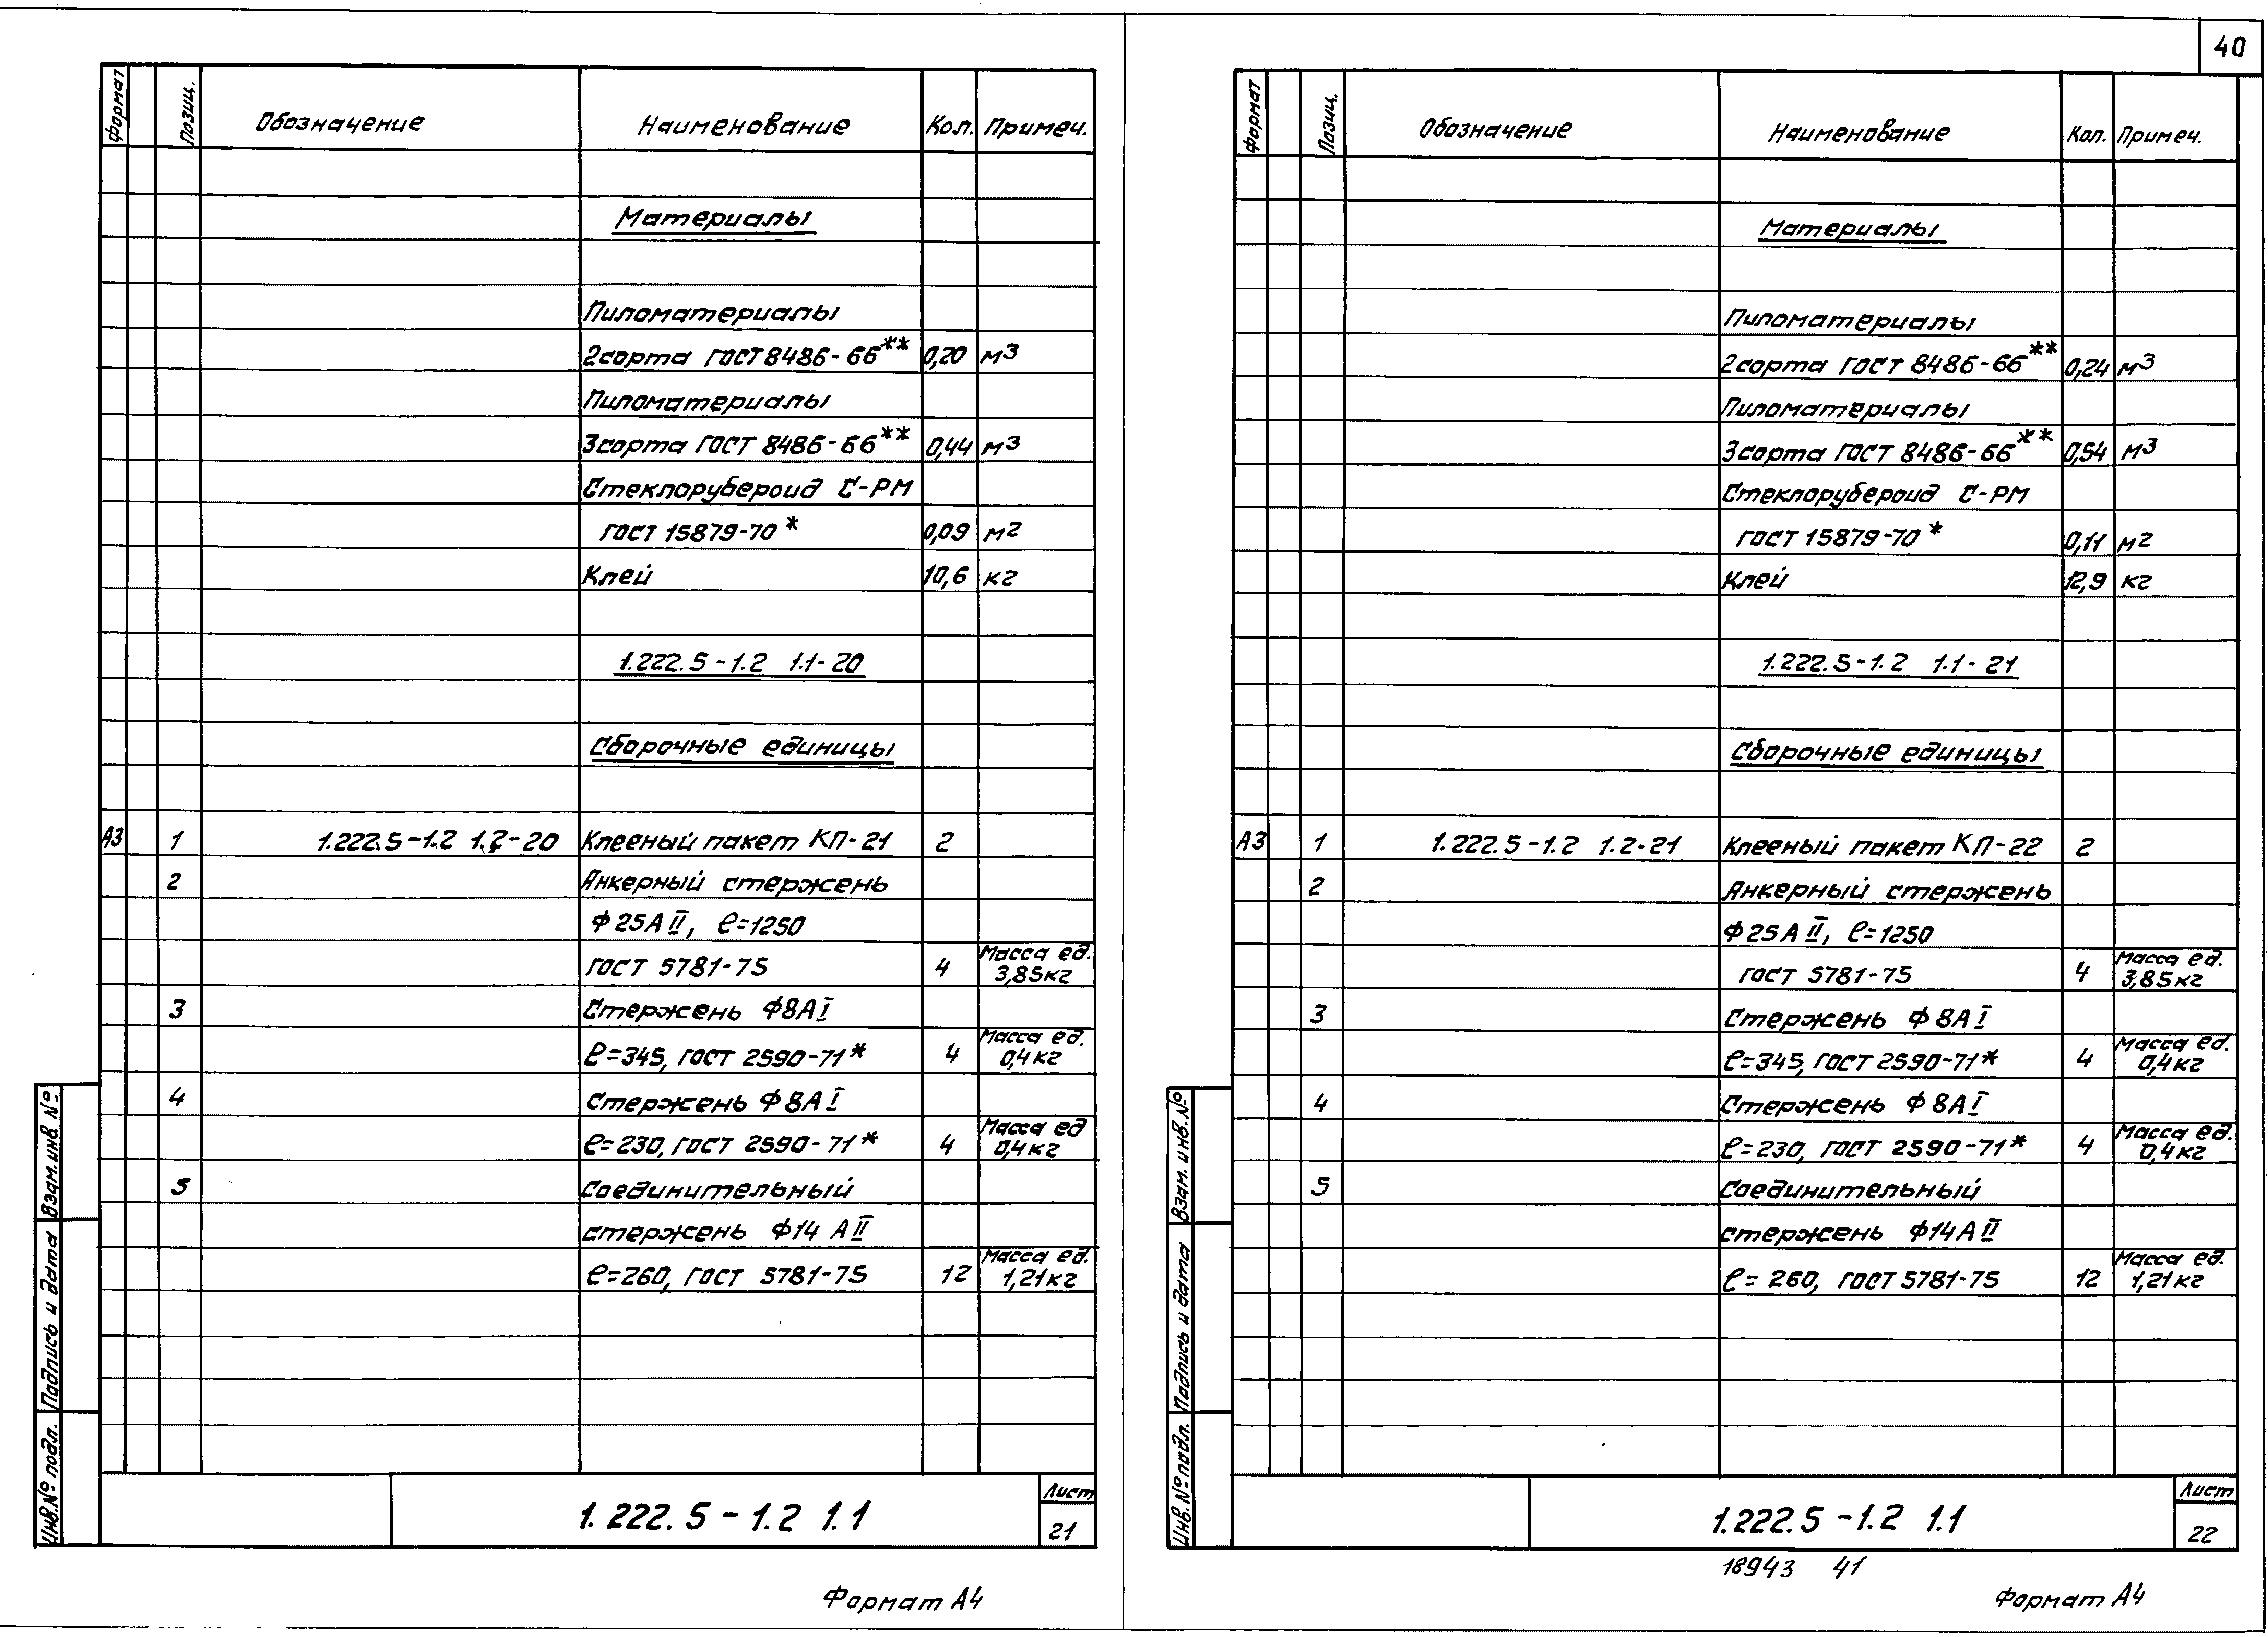 40
Формат Позиц. Обозначение Наименование Кол. Примеч.
Материалы
Пиломатериалы
2сорта ГОСТ 8486-66** 0,20 м3
Пиломатериалы
3сорта ГОСТ 8486-66** 0,44 м3
Стеклорубероид С-РМ
ГОСТ 15879-70* 0,09 м2
Клей 10,6 кг
1.222.5-1.2 1.1-20
Сборочные единицы
А3 1 1.222.5-1.2 1.2-20 Клееный пакет КП-21 2
2 Анкерный стержень
Ф25АII, ℓ=1250
ГОСТ 5781-75 4 Масса ед. 3,85кг
3 Стержень Ф8АI
ℓ=345, ГОСТ 2590-71* 4 Масса ед. 0,4кг
4 Стержень Ф8АI
ℓ=230, ГОСТ 2590-71* 4 Масса ед 0,4кг
5 Соединительный
стержень Ф14 АII
ℓ=260, ГОСТ 5781-75 12 Масса ед. 1,21кг
Взам.инв.№
Подпись и дата
Инв.№ подл.
1.222.5-1.2 1.1
Лист
21
Формат А4
Формат Позиц. Обозначение Наименование Кол. Примеч.
Материалы
Пиломатериалы
2сорта ГОСТ 8486-66** 0,24 м3
Пиломатериалы
3сорта ГОСТ 8486-66** 0,54 м3
Стеклорубероид С-РМ
ГОСТ 15879-70* 0,11 м2
Клей 12,9 кг
1.222.5-1.2 1.1-21
Сборочные единицы
А3 1 1.222.5-1.2 1.2-21 Клееный пакет КП-22 2
2 Анкерный стержень
Ф25АII, ℓ=1250
ГОСТ 5781-75 4 Масса ед. 3,85кг
3 Стержень Ф8АI
ℓ=345, ГОСТ 2590-71* 4 Масса ед. 0,4кг
4 Стержень Ф8АI
ℓ=230, ГОСТ 2590-71* 4 Масса ед. 0,4кг
5 Соединительный
стержень Ф14АII
ℓ=260, ГОСТ 5781-75 12 Масса ед. 1,21кг
Взам.инв.№
Подпись и дата
Инв.№ подл.
1.222.5-1.2 1.1
Лист
22
18943 41
Формат А4